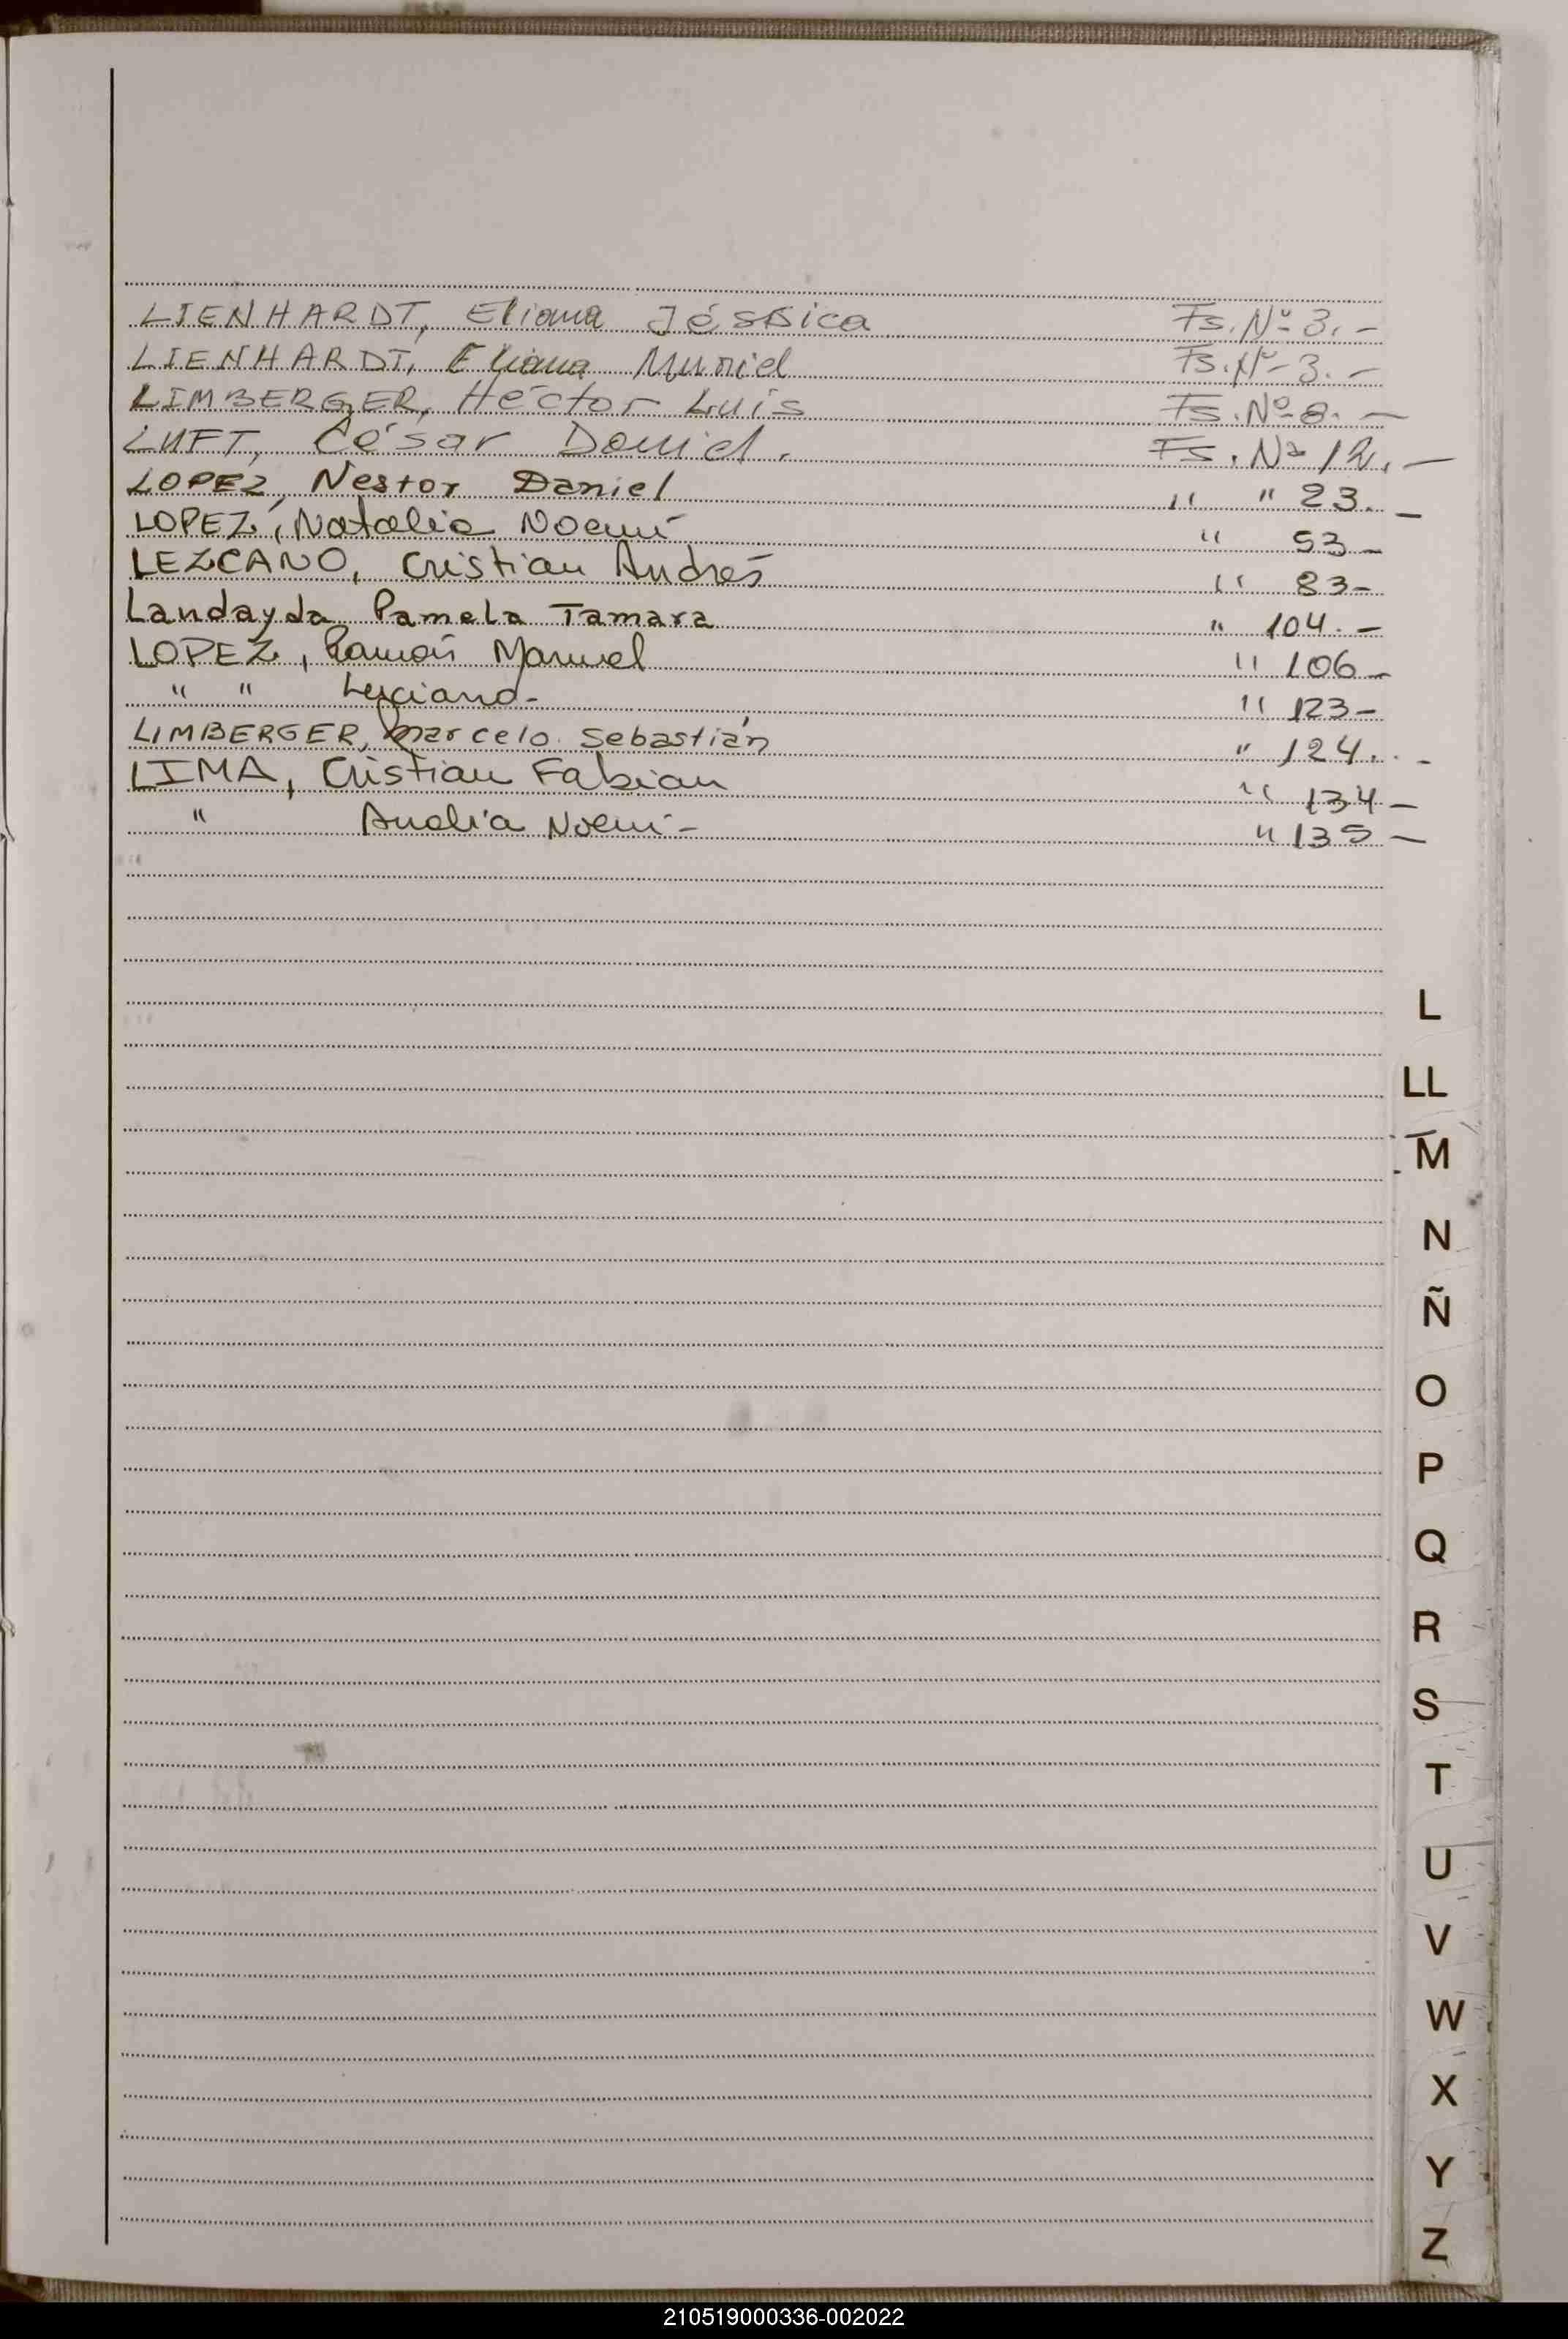 LIENHARDT, Eliana Jéssica Fs. Nº 3. -
LIENHARDT, Eliana Muriel Fs. Nº 3. -
LIMBERGER, Héctor Luis Fs. Nº 8. -
LUFT, César Daniel. Fs. Nº 12. -
LOPEZ, Nestor Daniel " " 23. -
LOPEZ, Natalia Noemí " 53 -
LEZCANO, Cristian Andrés " 83 -
Landayda Pamela Tamara " 104. -
LOPEZ, Ramón Manuel " 106 -
" " Luciano - " 123 -
LIMBERGER, Marcelo Sebastián " 124. -
LIMA, Cristian Fabian " 134 -
" Analia Noemi - " 135 -
L
LL
M
N
Ñ
O
P
Q
R
S
T
U
V
W
X
Y
Z
210519000336-002022